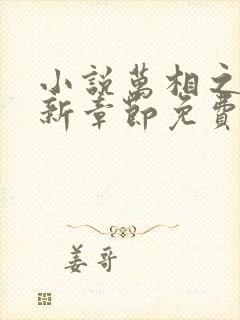 小說萬相之
新章節免費
姜哥